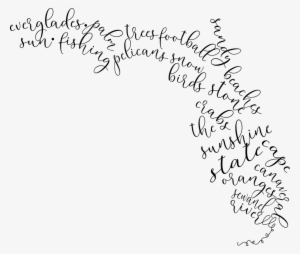 everglades. palm trees football sandy
sun. fishing pelicans snow beaches
birds stone
crabs
the
sunshine
state cape
canaveral
oranges
sewanee
river